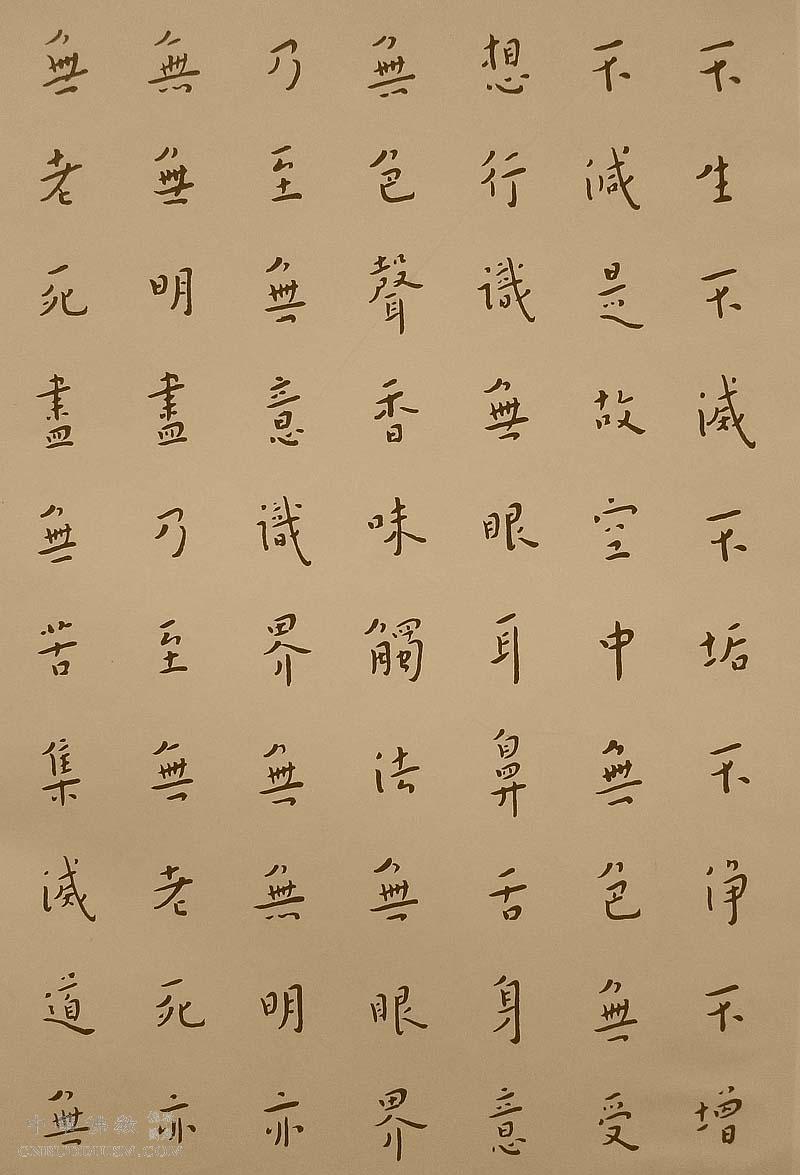 不生不滅不垢不淨不增
不減是故空中無色無受
想行識無眼耳鼻舌身意
無色聲香味觸法無眼界
乃至無意識界無無明亦
無無明盡乃至無老死亦
無老死盡無苦集滅道無
中華佛教
CNBUDDHISM.COM